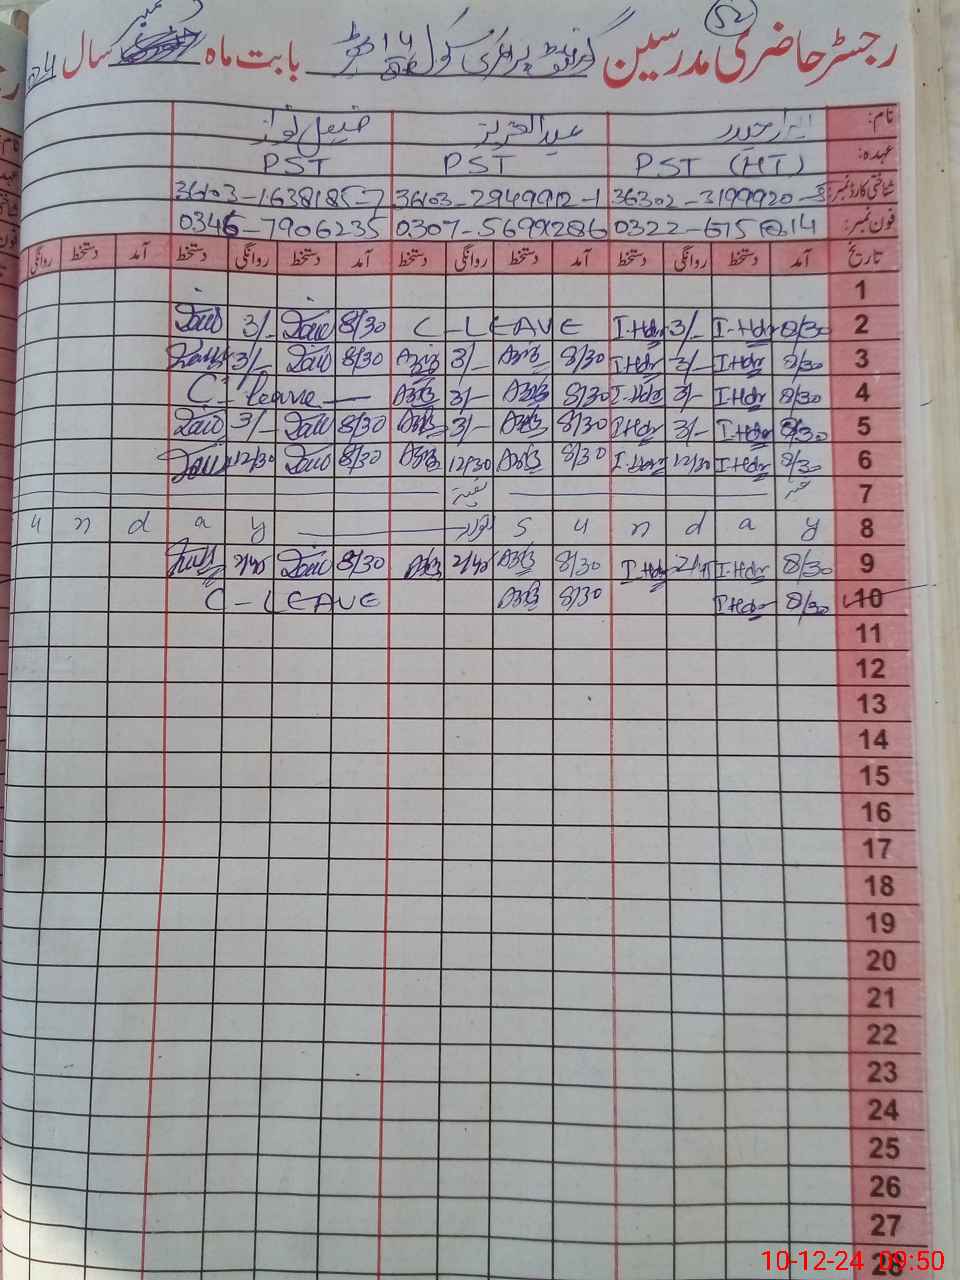 52
رجسٹر حاضری مدرسین گورنمنٹ پرائمری سکول 14 بابت ماہ دسمبر سال
نام: ابرار حیدر عبدالعزیز نواز
عہدہ: PST (HT) PST PST
شناختی کارڈ نمبر: 36302-3199920-3 36103-2949912-1 36103-1638185-7
فون نمبر: 0307-5699286 0346-7906235
تاریخ آمد دستخط روانگی دستخط آمد دستخط روانگی دستخط آمد دستخط روانگی دستخط آمد دستخط روانگی
1
2 8/30 I.Hdr 3/- I.Hdr C-LEAVE 8/30 3/-
3 8/30 I.Hdr 3/- I.Hdr 8/30 Aziz 3/- Aziz 8/30 3/-
4 8/30 I.Hdr 3/- I.Hdr 8/30 Aziz 3/- Aziz C-leave
5 8/30 I.Hdr 3/- I.Hdr 8/30 Aziz 3/- Aziz 8/30 3/-
6 8/30 I.Hdr 12/30 I.Hdr 8/30 Aziz 12/30 Aziz 8/30 12/30
7
8 y a d n u S اتوار y a d n u
9 8/30 I.Hdr 2/45 I.Hdr 8/30 Aziz 2/45 Aziz 8/30 2/45
10 8/30 I.Hdr 8/30 Aziz C-LEAVE
11
12
13
14
15
16
17
18
19
20
21
22
23
24
25
26
27
28
10-12-24 09:50